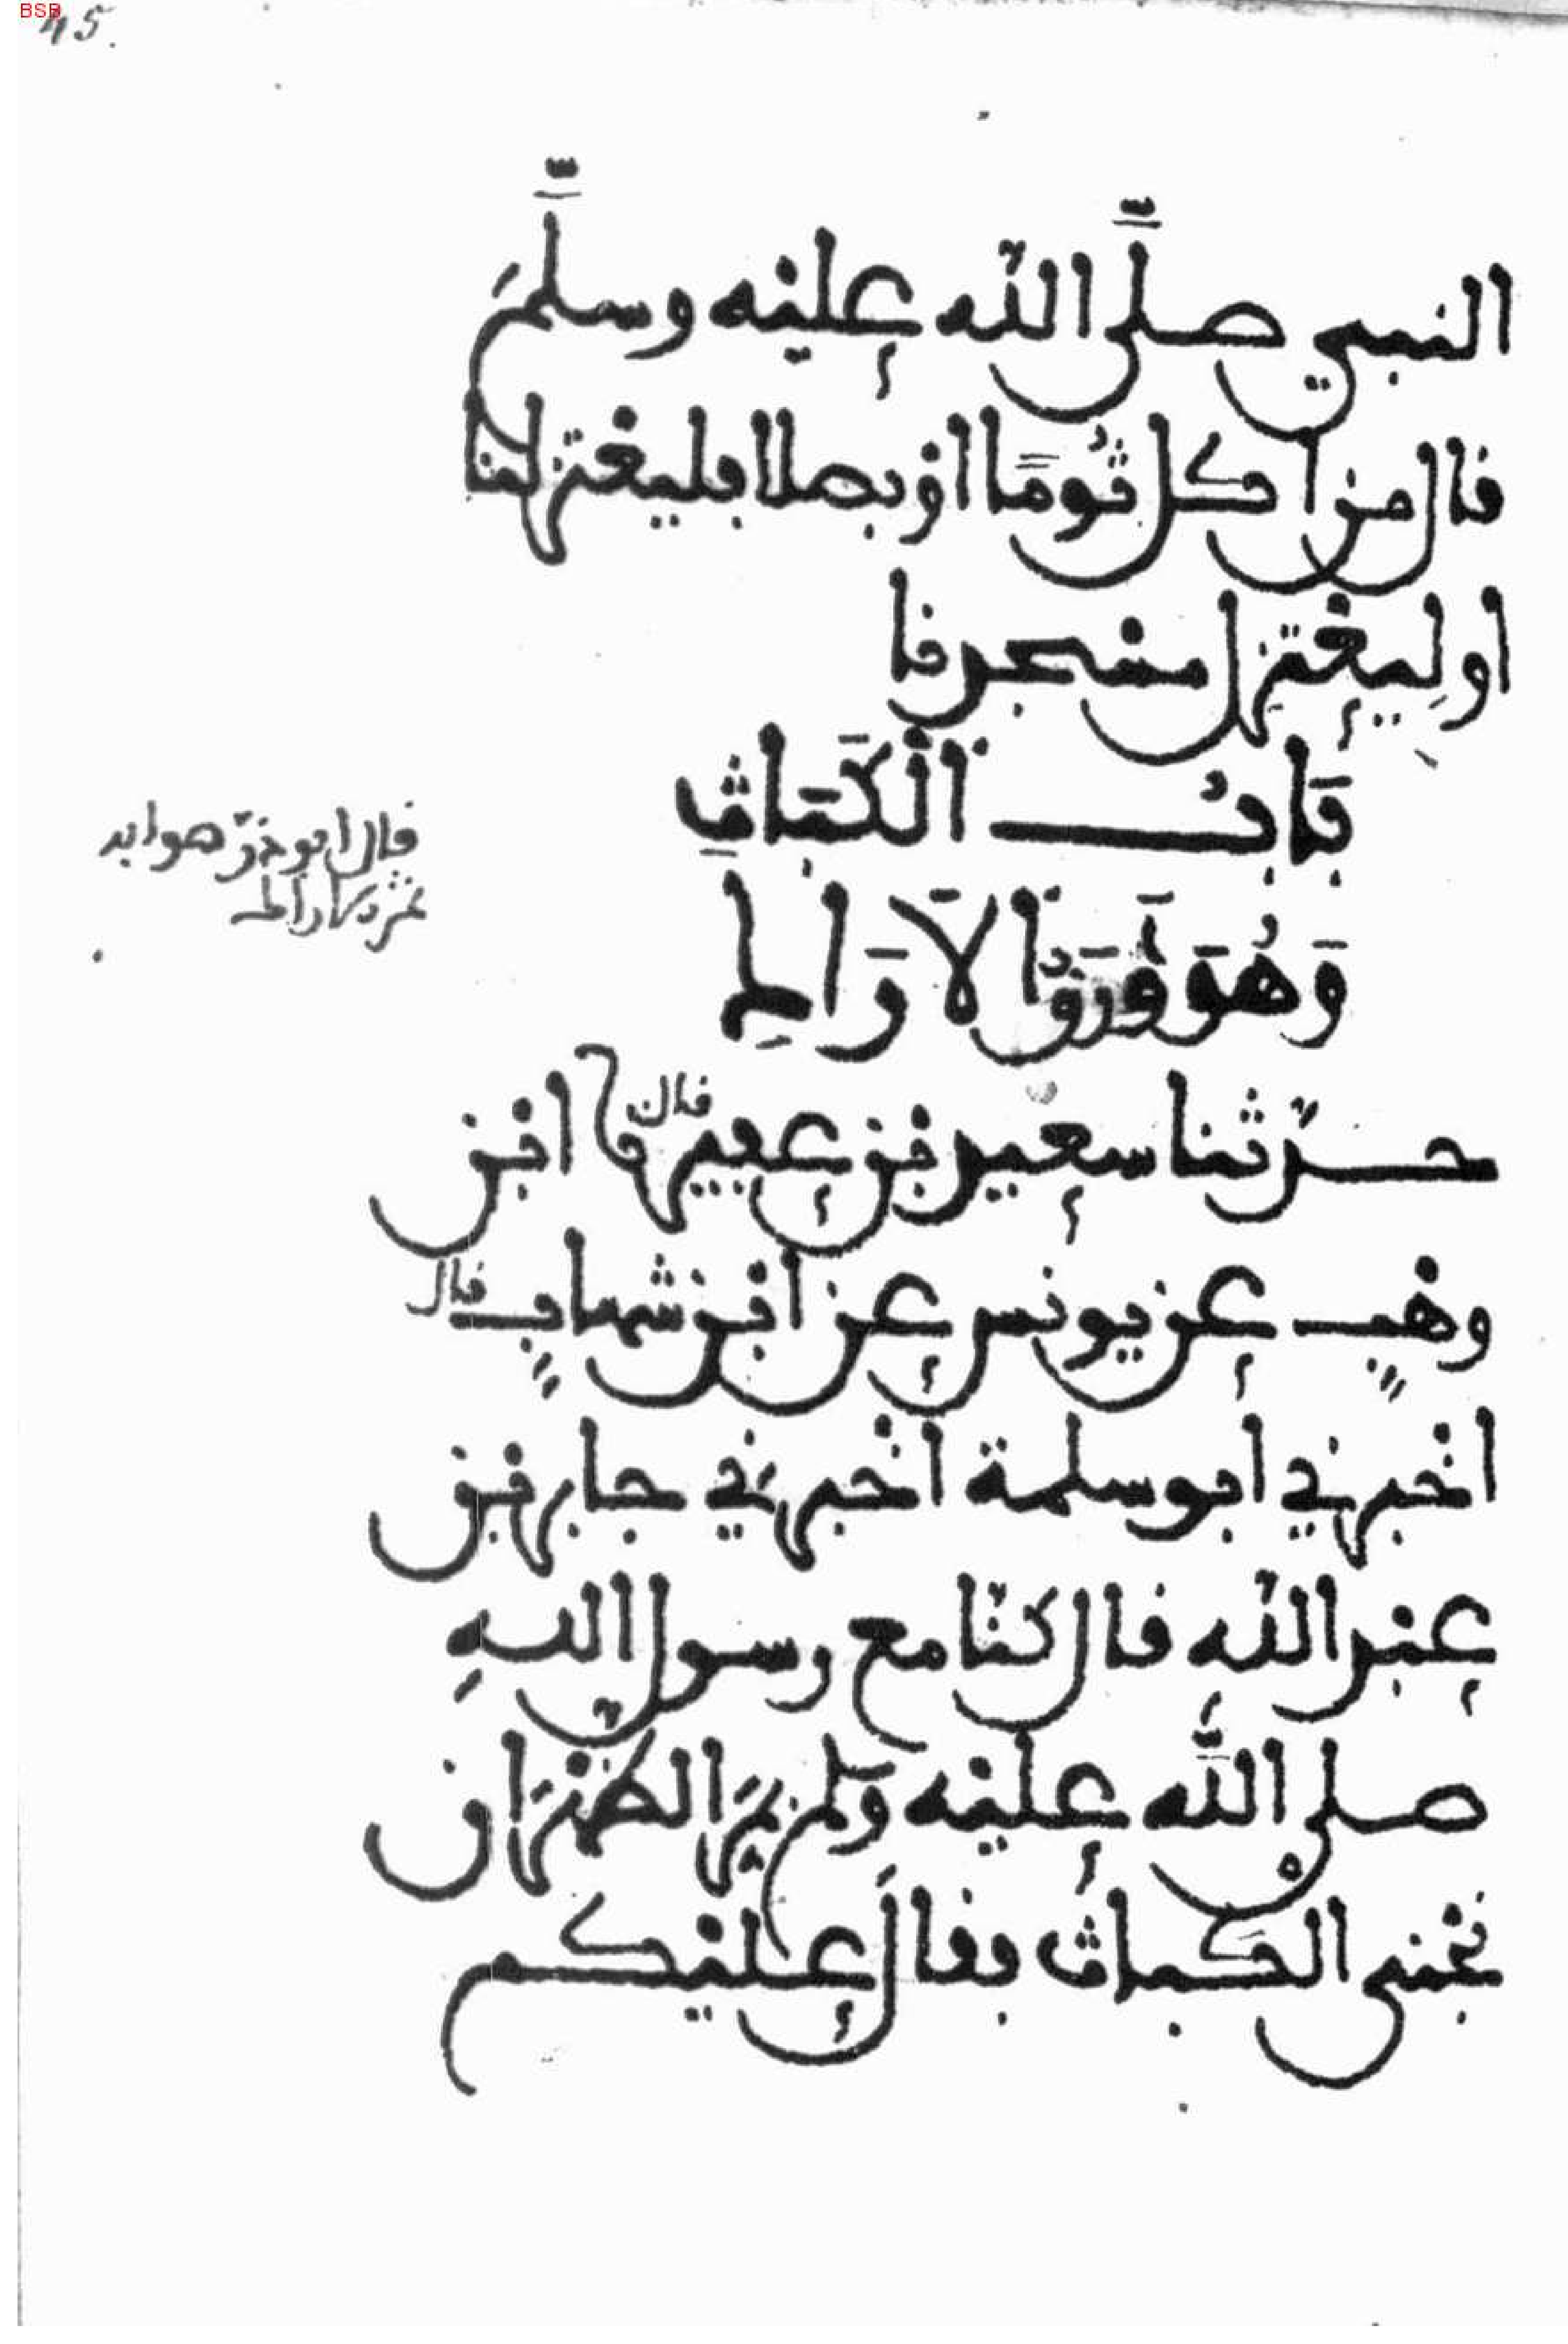 45.
النبي صلَّى اللّه علِيْه وسلَّمَ
قال من اكل ثُومًا اوْ بصلا فليعْتزلْنا
او لِيعْتزِل مسْجدنا
بَابُ الْكَبَاثِ
وَهُوَ وَرَقُ الْأَرَاكِ
قال ابو ذرّ هو ابد
ثمر الاراك
حدّثنا سعيد بْن عفير قال نا ابْن
وهْبٍ عن يونس عن ابْن شهابٍ قال
اخْبرني ابو سلمة اخْبرَني جابر بْن
عبْد اللّه قال كنّا مع رسول اللهِ
صلى اللَّه عليْه وَلم بمَرِّ الظّهْرَان
نجْني الكباث فقالَ عليْكم